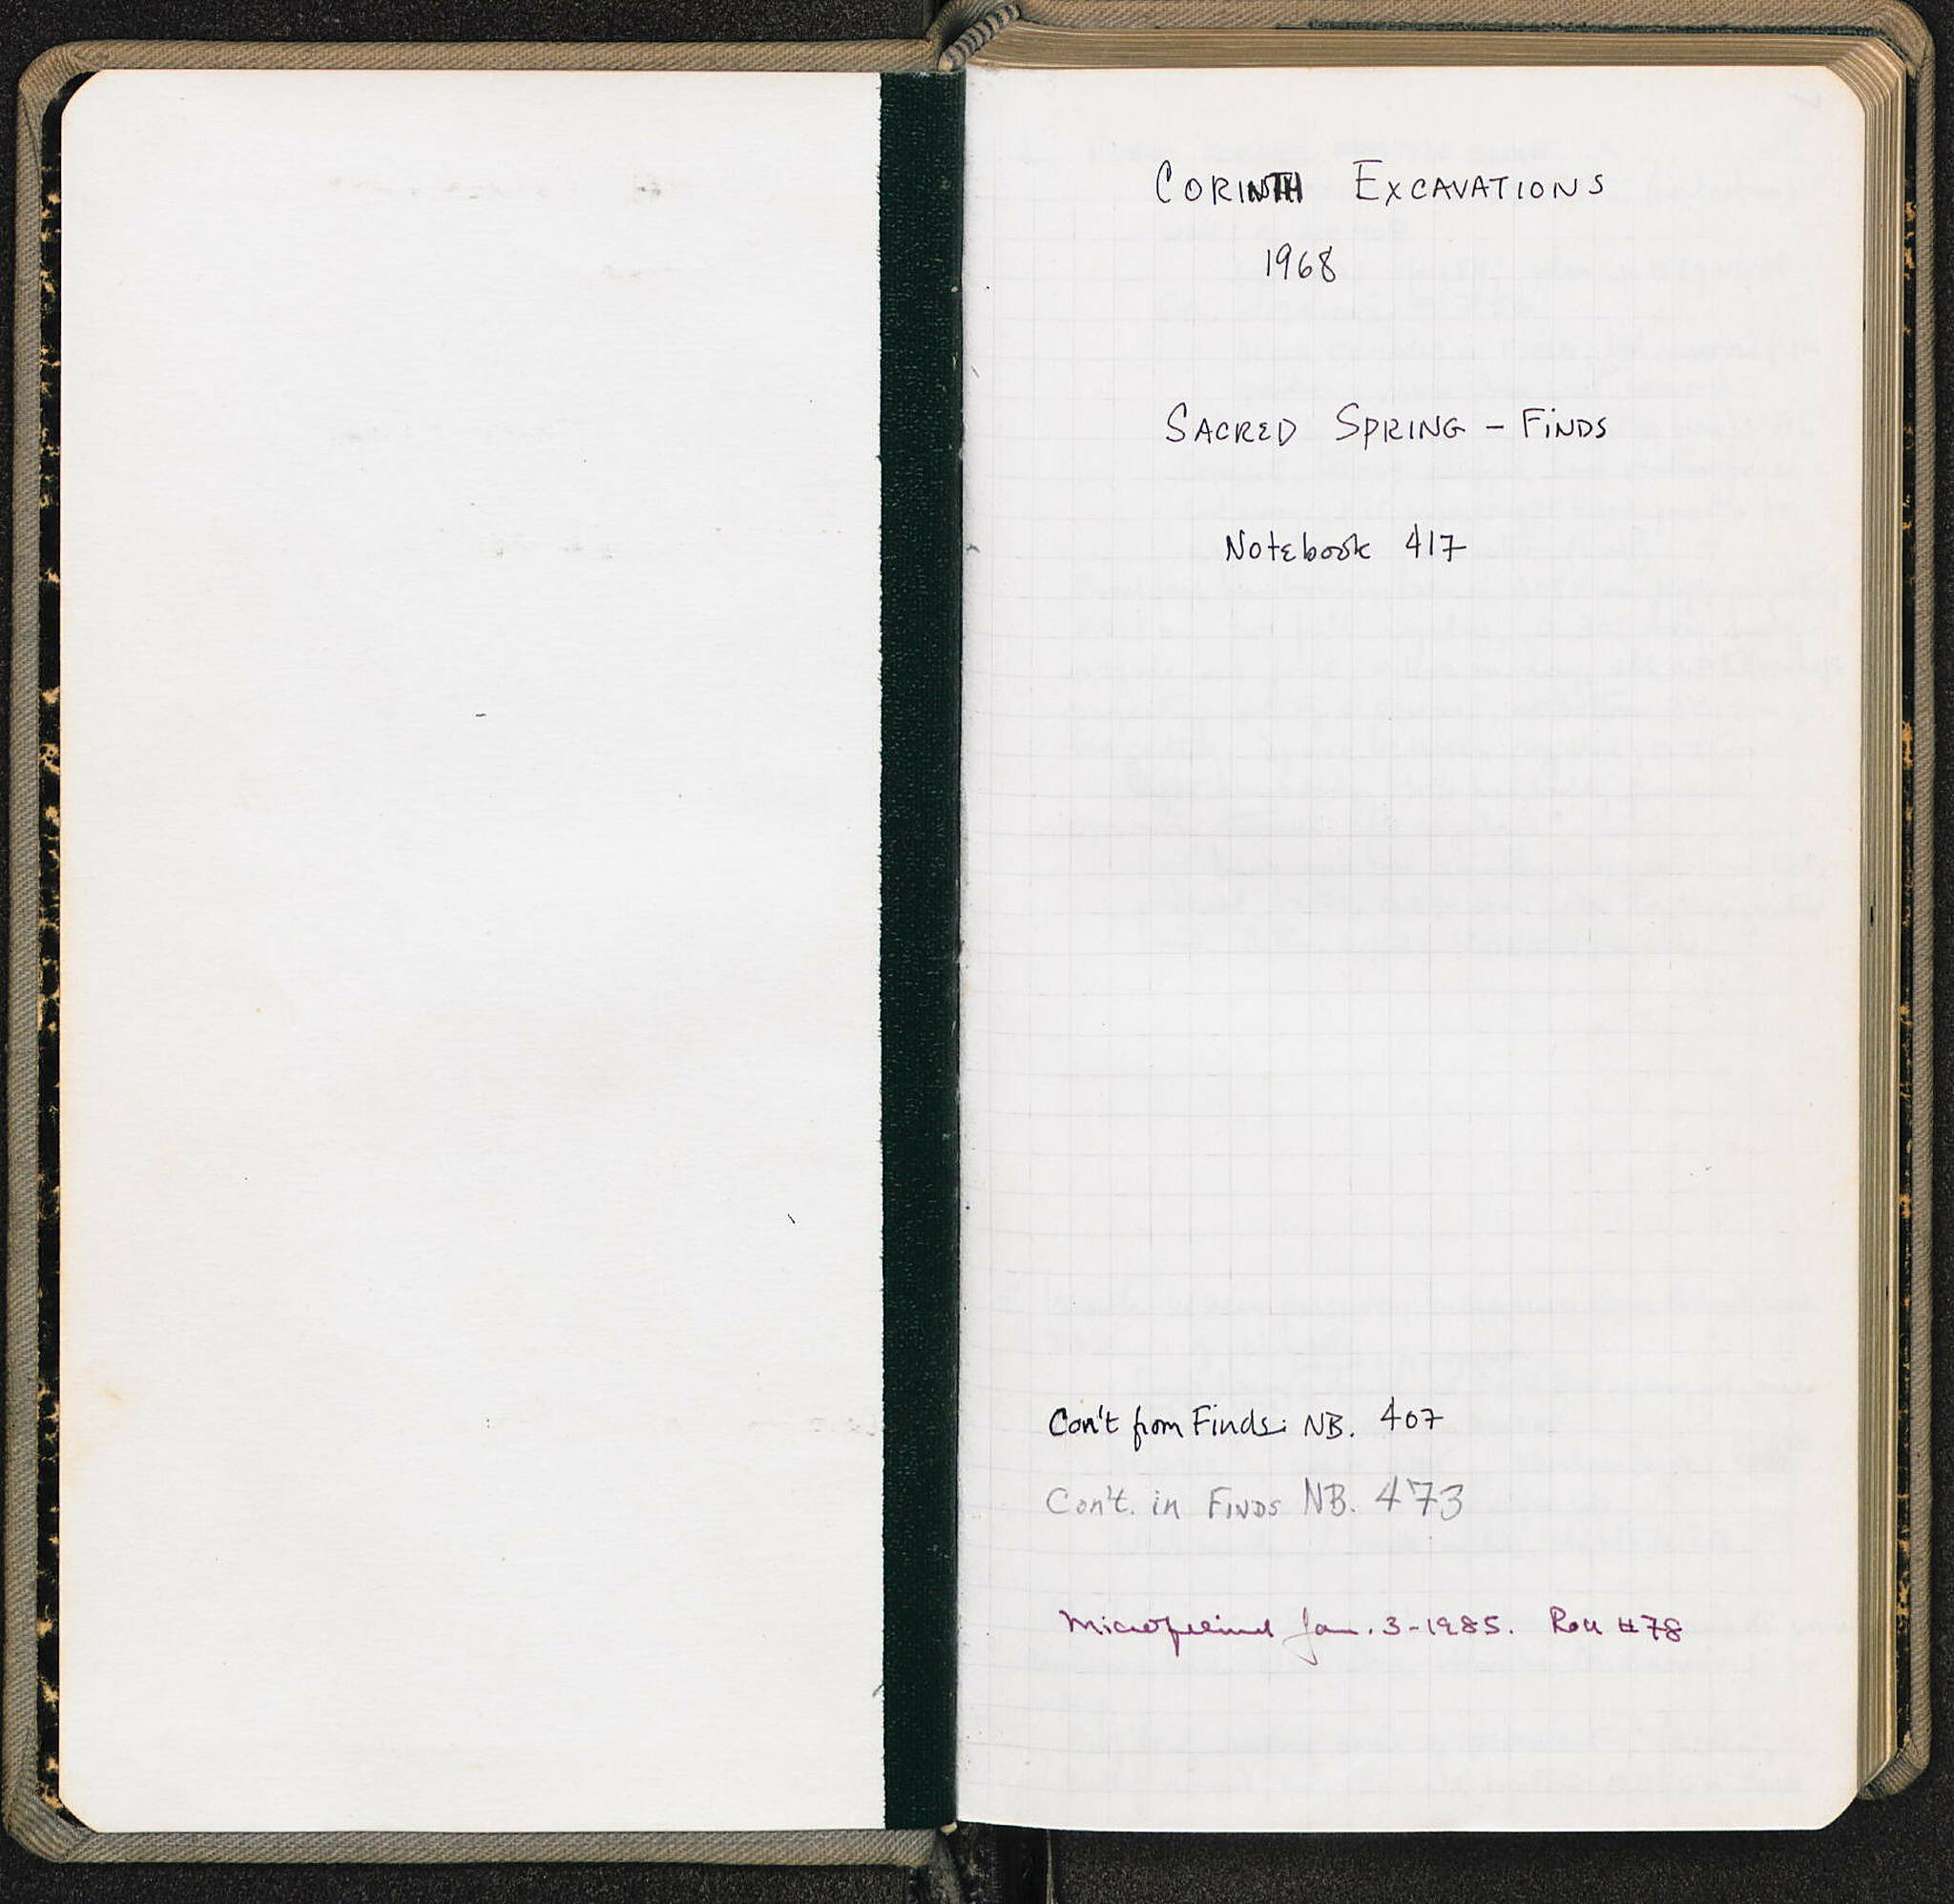 CORINTH EXCAVATIONS
1968
SACRED SPRING - FINDS
Notebook 417
Con't from Finds: NB. 407
Con't. in FINDS NB. 473
Microfilmed Jan. 3-1985. Roll #78